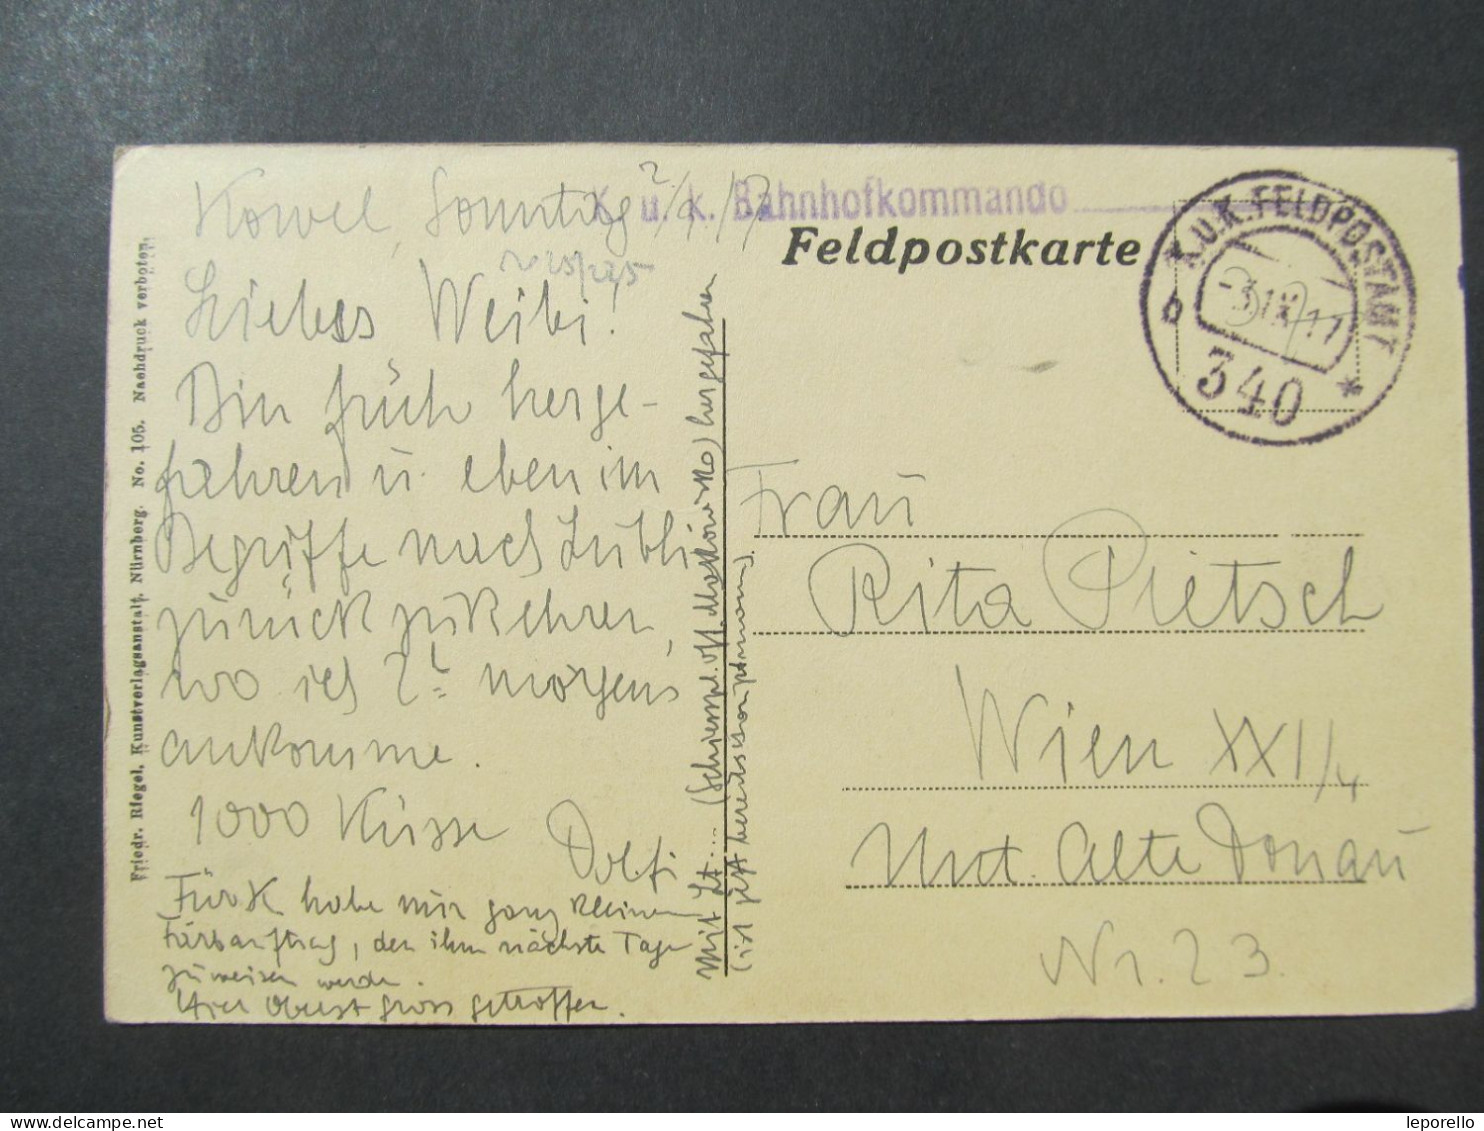 Kowel, Sonntag 2/9/17
K. u. k. Bahnhofkommando
Feldpostkarte
K.U.K. FELDPOSTAMT
-3 IX 17
b
340
*
Liebes Weibi!
Bin früh herge-
fahren u. eben im
Begriffe nach Lublin
zurückzukehren,
wo ich 2h morgens
ankomme.
1000 Küsse
Dolfi
Für K habe mir ganz kleinen
Farbauftrag, den ihm nächste Tage
zuweisen werde.
Hier Oberst Gross getroffen.
Mit Lt.... hergefahren
(ist jetzt bereits
Frau
Rita Pietsch
Wien XXI/4
Unt. Alte Donau
Nr. 23.
Friedr. Riegel, Kunstverlagsanstalt, Nürnberg. No. 105. Nachdruck verboten.
leporello